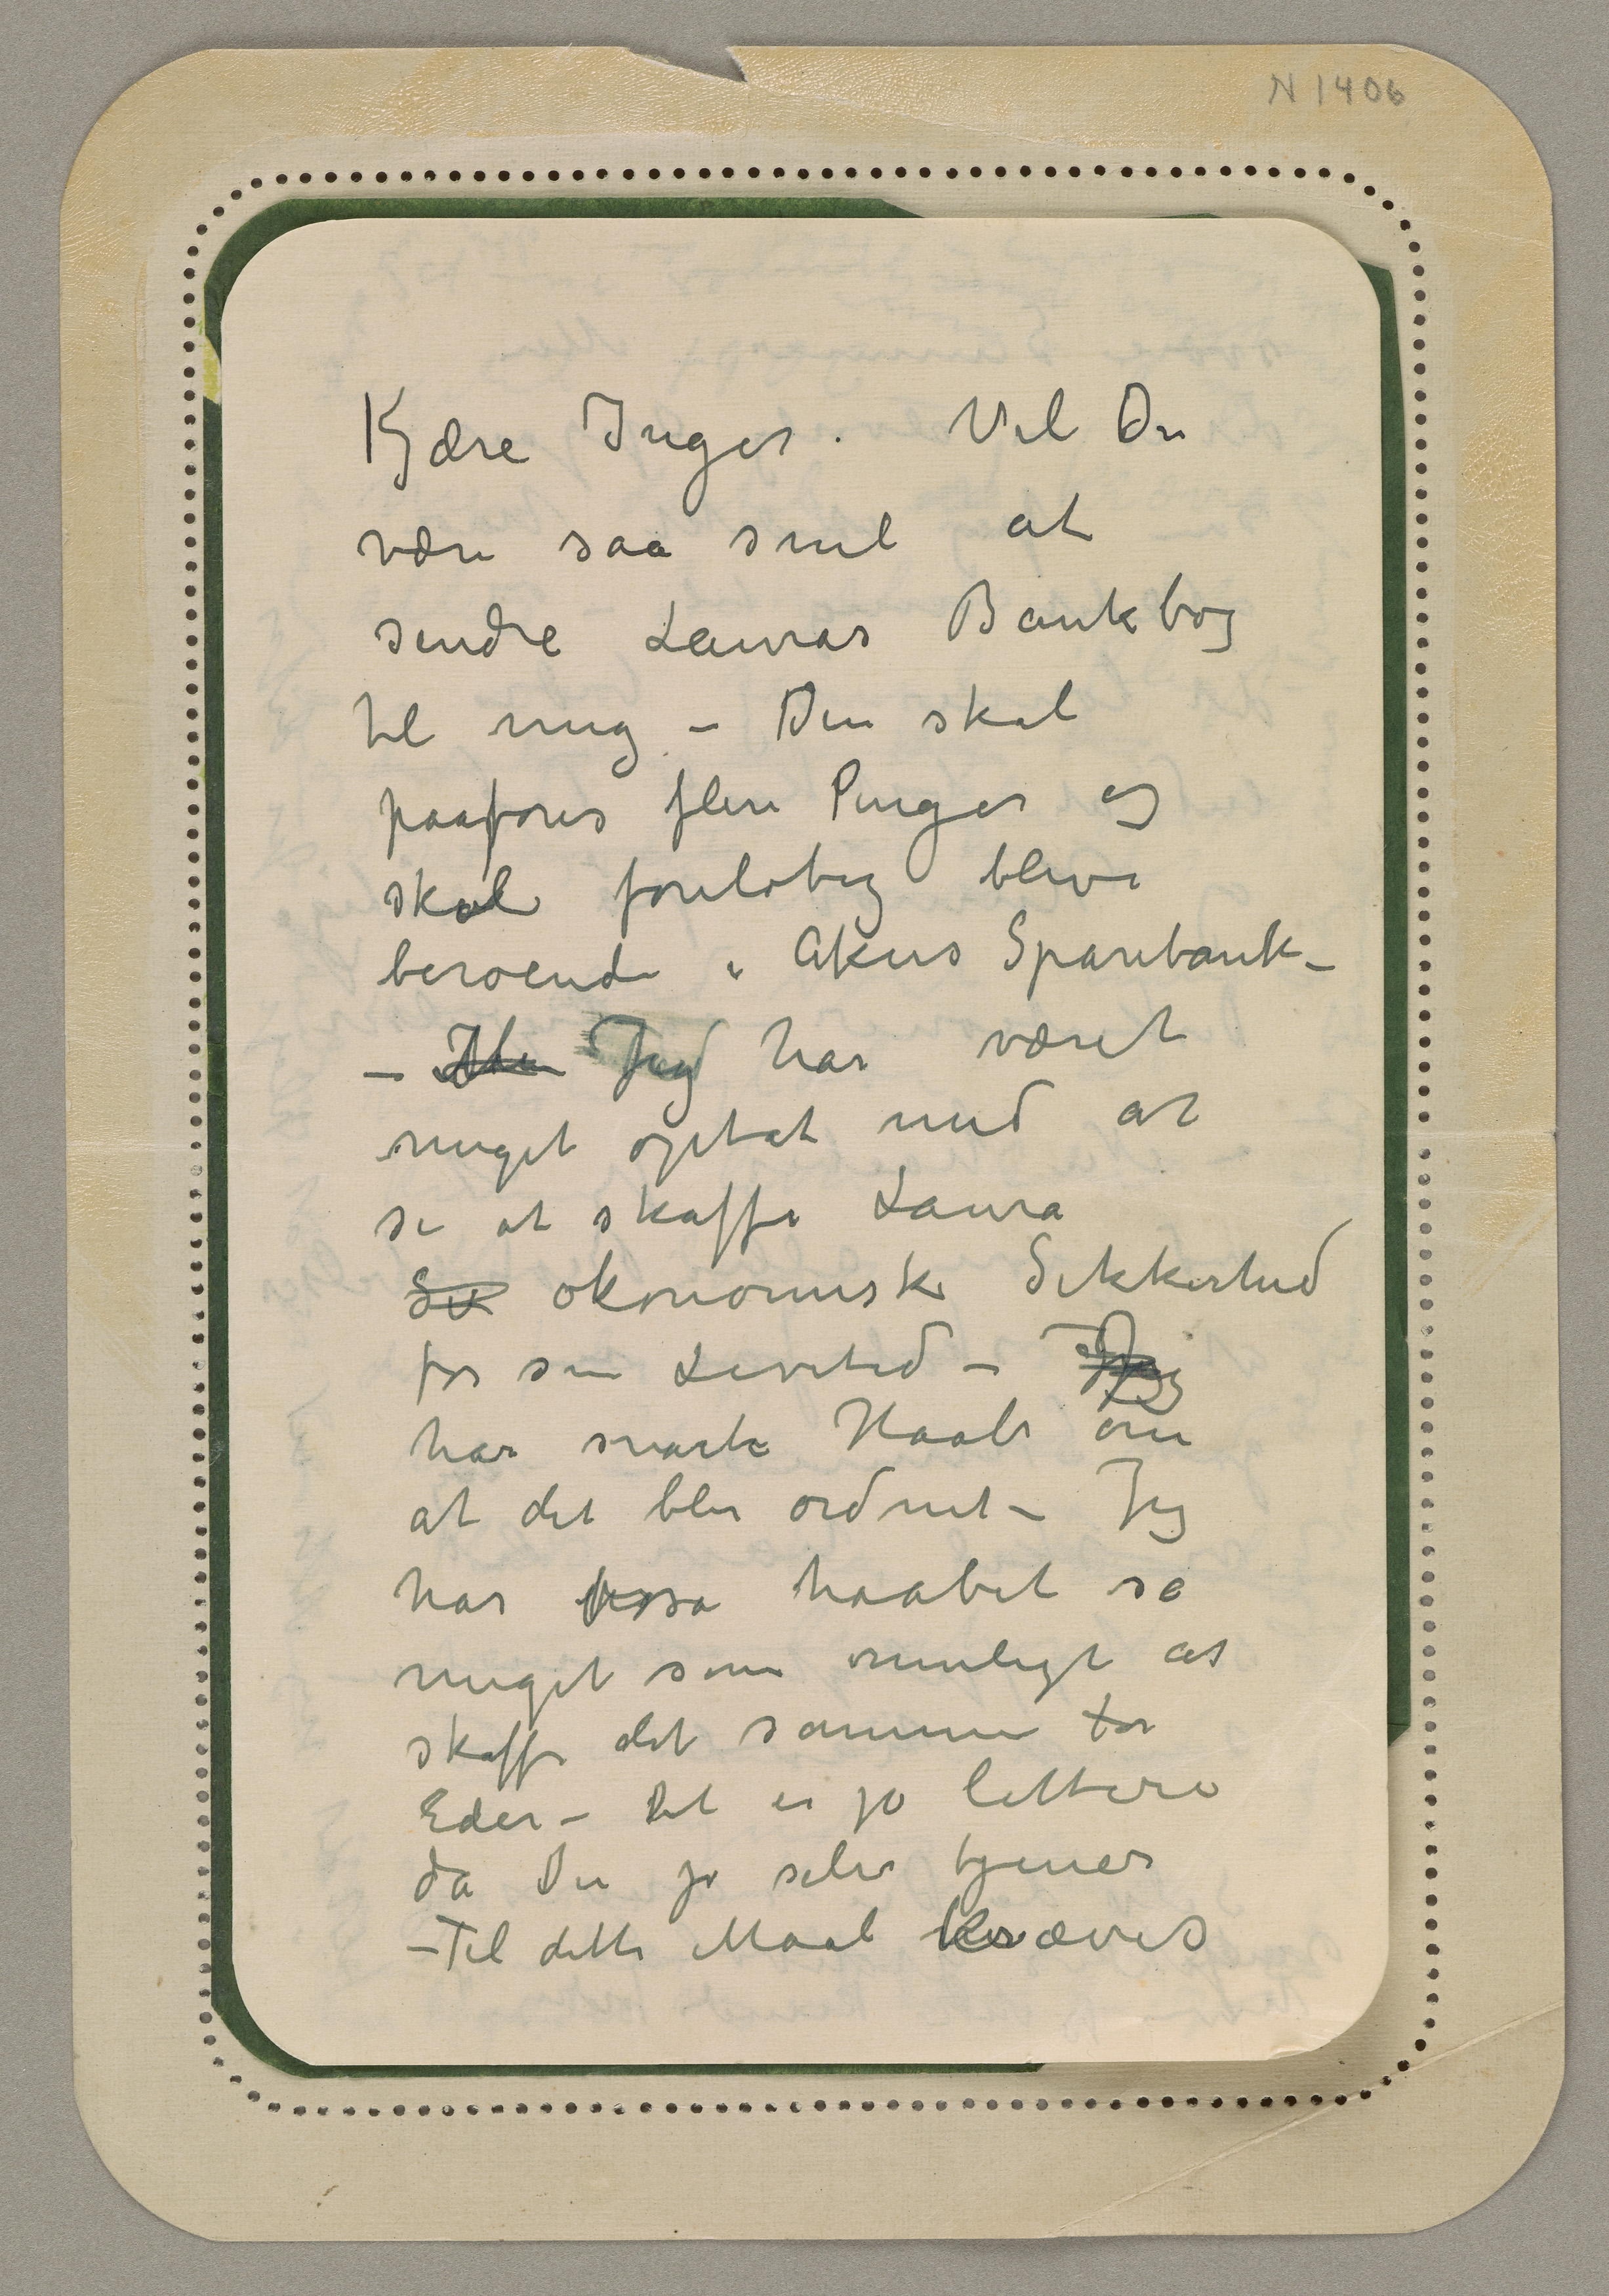 N 1406
Kjære Inger. Vil Du
være saa snil at
sendre Lauras Bankbog
til mig – Den skal
paaføres flere Penger og
skal foreløbig blive
beroende i Akers Sparebank –
– Jeg har været
meget optat med at
se at skaffe Laura
økonomisk Sikkerhed
for sin Levetid –
har svake Haab om
at det blir ordnet – Jeg
har haabet så
meget som muligt at
skaffe det samme for
Eder – Det er jo lettere
da Du jo selv tjener
– Til dette Maal kræves